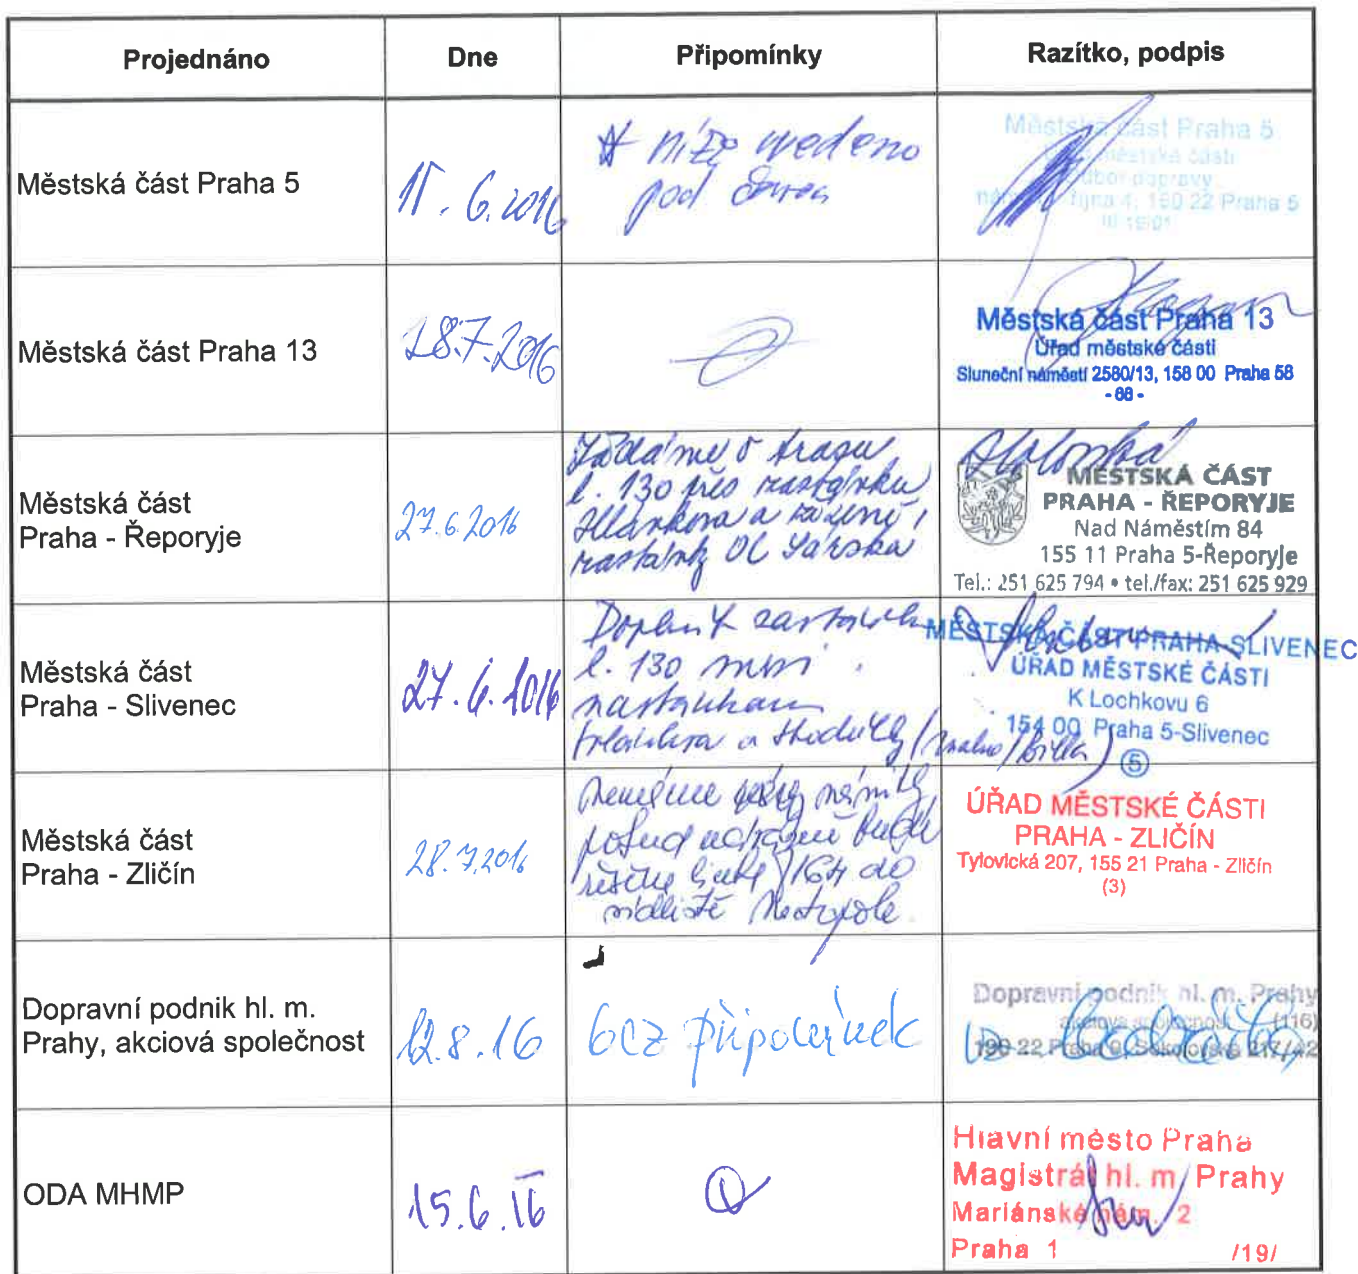 Projednáno Dne Připomínky Razítko, podpis
Městská část Praha 5
6. 2016
* níže uvedeno
pod
Městská část Praha 5
Úřad městské části
Odbor dopravy
října 4, 150 22 Praha 5
Městská část Praha 13
28.7.2016
Městská část Praha 13
Úřad městské části
Sluneční náměstí 2580/13, 158 00 Praha 58
- 68 -
Městská část
Praha - Řeporyje
27.6.2016
Žádáme o trasu
l. 130 přes zastávku
a
zastávky OC
MĚSTSKÁ ČÁST
PRAHA - ŘEPORYJE
Nad Náměstím 84
155 11 Praha 5-Řeporyje
Tel.: 251 625 794 • tel./fax: 251 625 929
Městská část
Praha - Slivenec
27.6.2016
Doplnit zastávku
l. 130 mezi
zastávkami
a
MĚSTSKÁ ČÁST PRAHA-SLIVENEC
ÚŘAD MĚSTSKÉ ČÁSTI
K Lochkovu 6
154 00 Praha 5-Slivenec
5
Městská část
Praha - Zličín
28.7.2016
Nemáme námitky
pokud bude
164 do
sídliště Metropole.
ÚŘAD MĚSTSKÉ ČÁSTI
PRAHA - ZLIČÍN
Tylovická 207, 155 21 Praha - Zličín
(3)
Dopravní podnik hl. m.
Prahy, akciová společnost
12.8.16
bez připomínek
Dopravní podnik hl. m. Prahy
akciová společnost (116)
190 22 Praha 9, Sokolovská 217/42
ODA MHMP
15.6.16
Hlavní město Praha
Magistrát hl. m. Prahy
Mariánské nám. 2
Praha 1 /19/